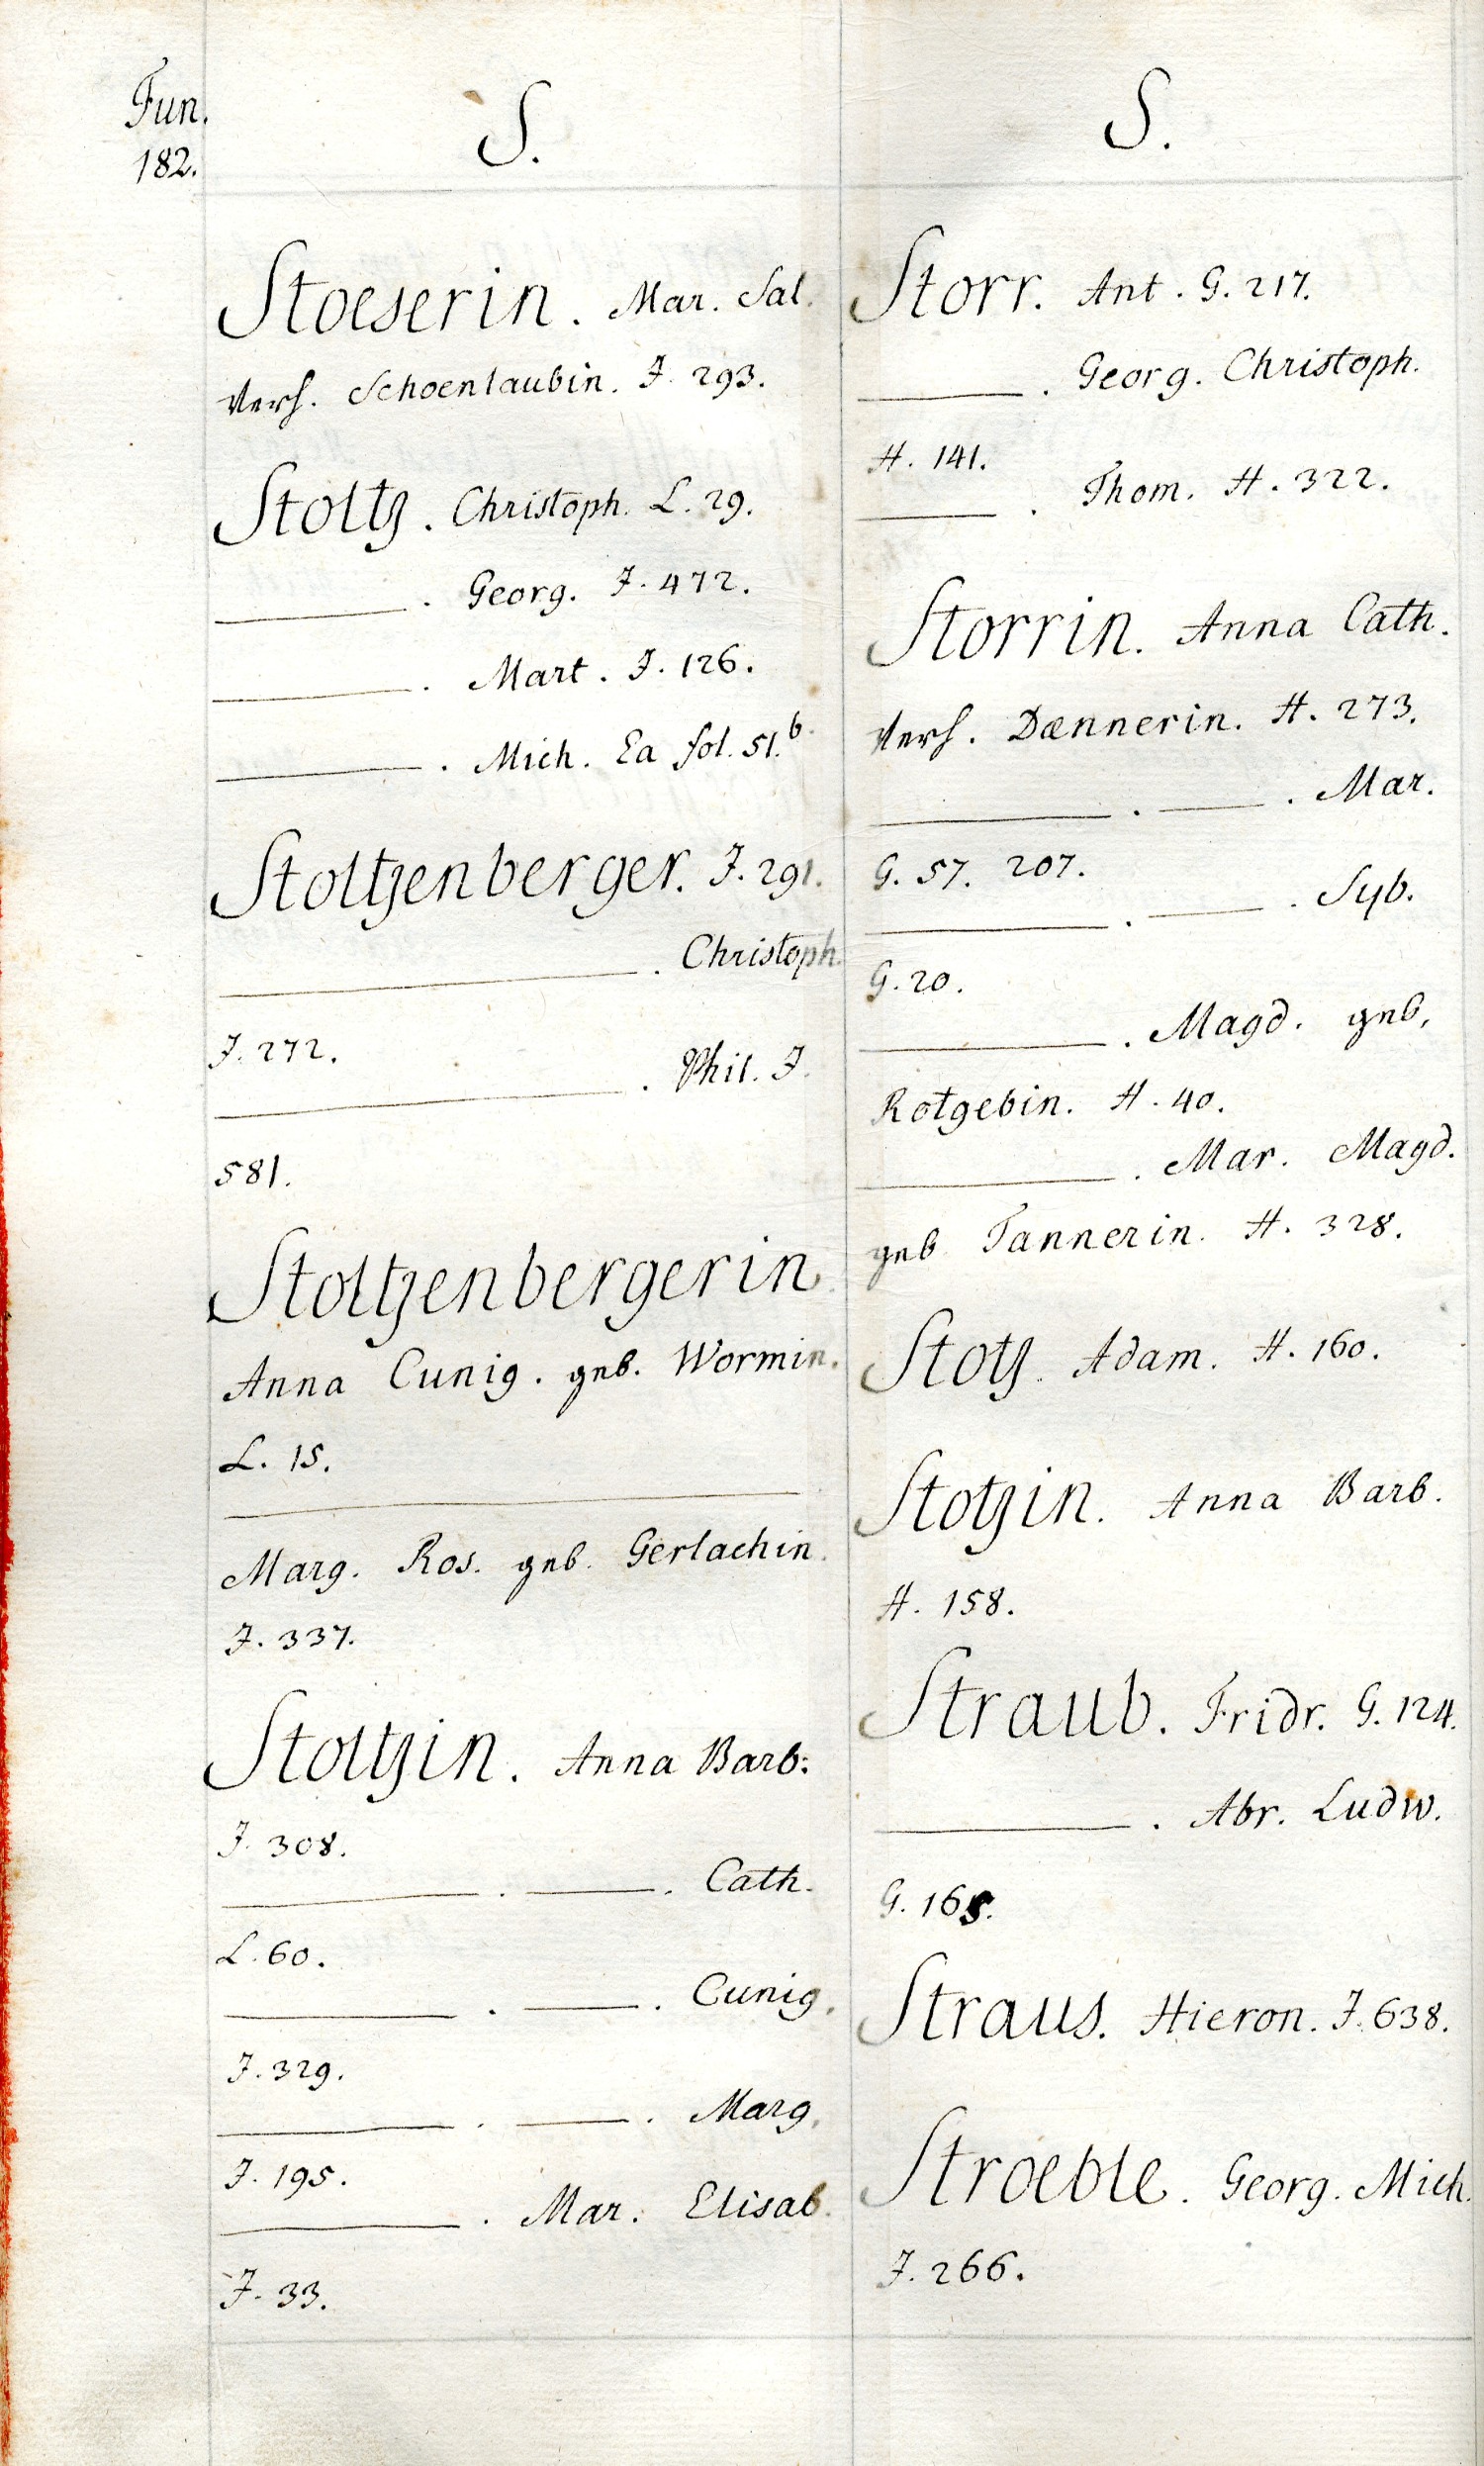 Fun.
182.
S.
Stoeserin. Mar. Sal.
Verh. Schoenlaubin. J. 293.
Stoltz. Christoph. L. 29.
———. Georg. J. 472.
———. Mart. J. 126.
———. Mich. Ea fol. 51.b.
Stoltzenberger. J. 291.
———. Christoph.
J. 272.
———. Phil. J.
581.
Stoltzenbergerin.
Anna Cunig. geb. Wormin.
L. 15.
———
Marg. Ros. geb. Gerlachin.
J. 337.
Stoltzin. Anna Barb:
J. 308.
———. ———. Cath.
L. 60.
———. ———. Cunig.
J. 329.
———. ———. Marg.
J. 195.
———. Mar. Elisab.
J. 33.
S.
Storr. Ant. G. 217.
———. Georg. Christoph.
H. 141.
———. Thom. H. 322.
Storrin. Anna Cath.
Verh. Dænnerin. H. 273.
———. ———. Mar.
G. 57. 207.
———. ———. Syb.
G. 20.
———. Magd. geb.
Rotgebin. H. 40.
———. Mar. Magd.
geb. Tannerin. H. 328.
Stotz. Adam. H. 160.
Stotzin. Anna Barb.
H. 158.
Straub. Fridr. G. 124.
———. Abr. Ludw.
G. 165.
Straus. Hieron. J. 638.
Stroeble. Georg. Mich.
J. 266.